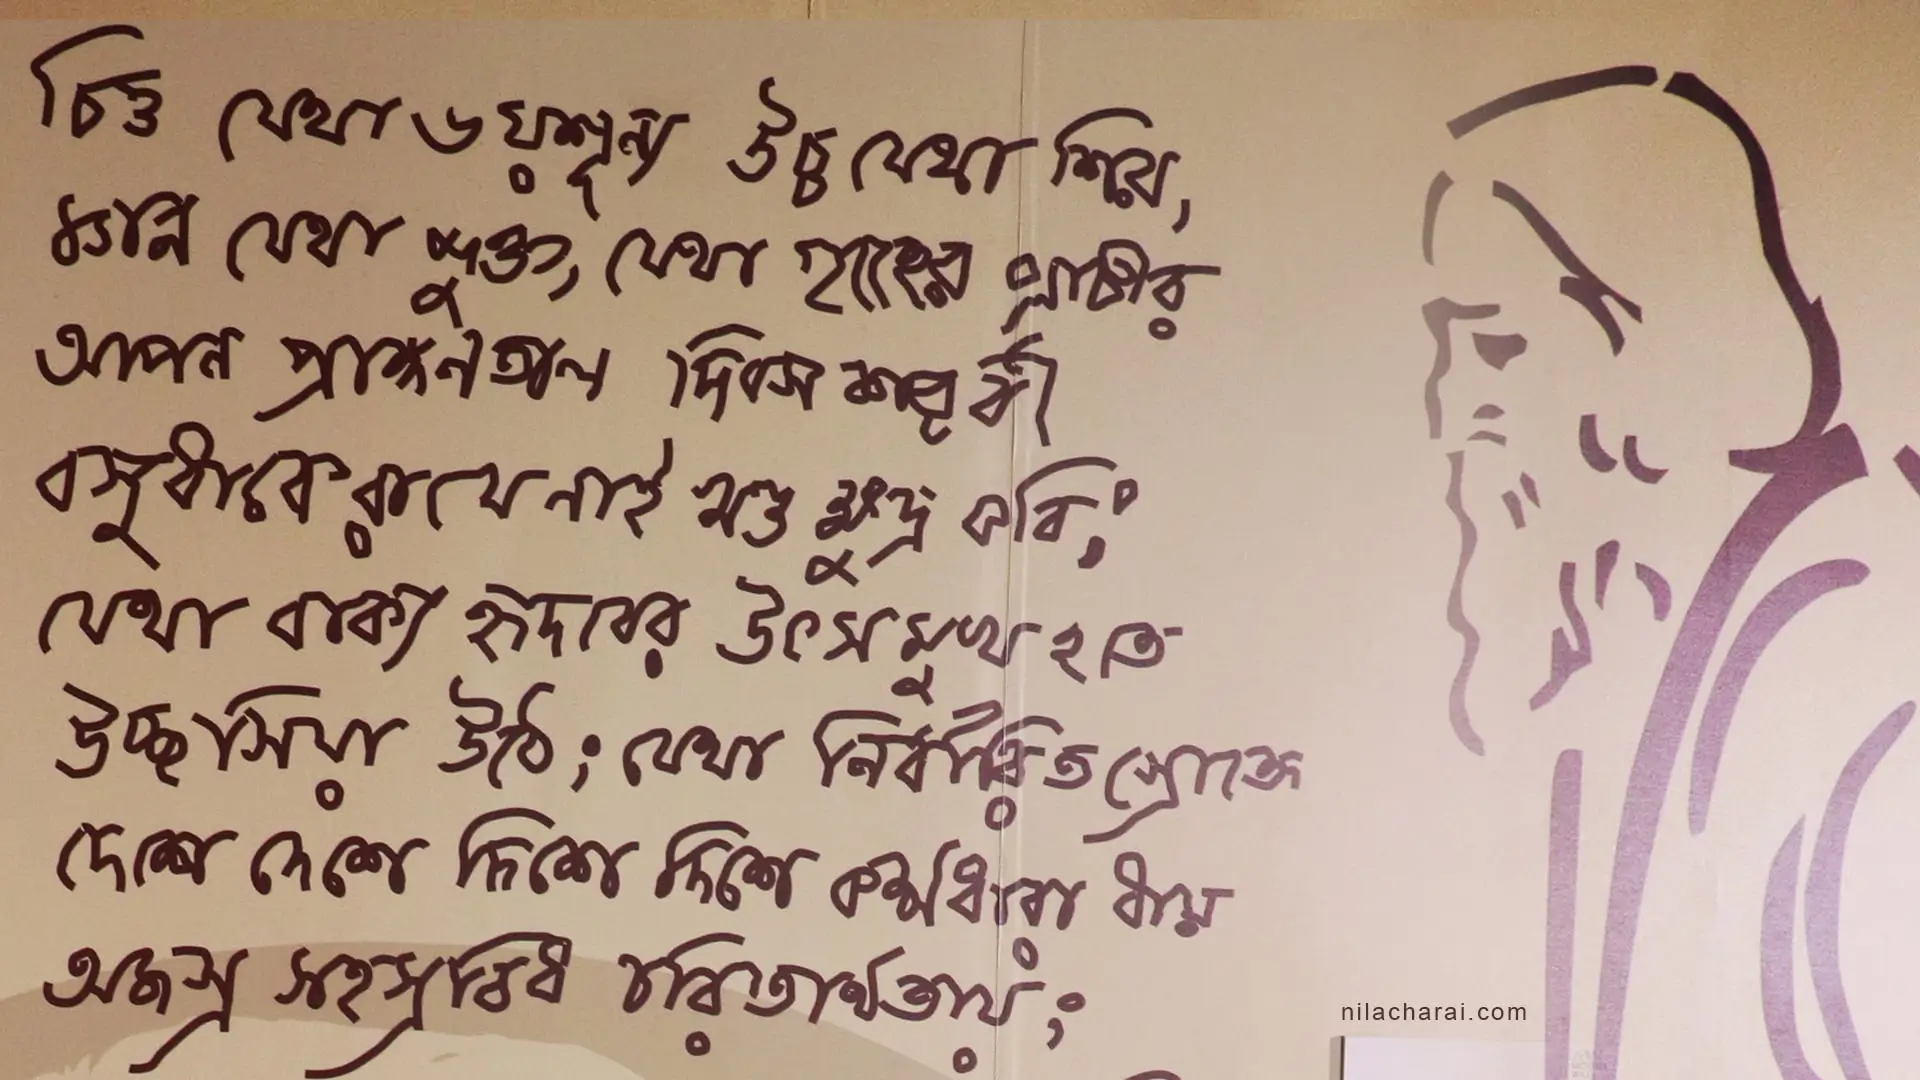 চিত্ত যেথা ভয়শূন্য উচ্চ যেথা শির,
জ্ঞান যেথা মুক্ত, যেথা গৃহের প্রাচীর
আপন প্রাঙ্গণতলে দিবসশর্বরী
বসুধারে রাখে নাই খণ্ড ক্ষুদ্র করি;
যেথা বাক্য হৃদয়ের উৎসমুখ হতে
উচ্ছ্বসিয়া উঠে; যেথা নির্বারিত স্রোতে
দেশে দেশে দিশে দিশে কর্মধারা ধায়
অজস্র সহস্রবিধ চরিতার্থতায়;
nilacharai.com